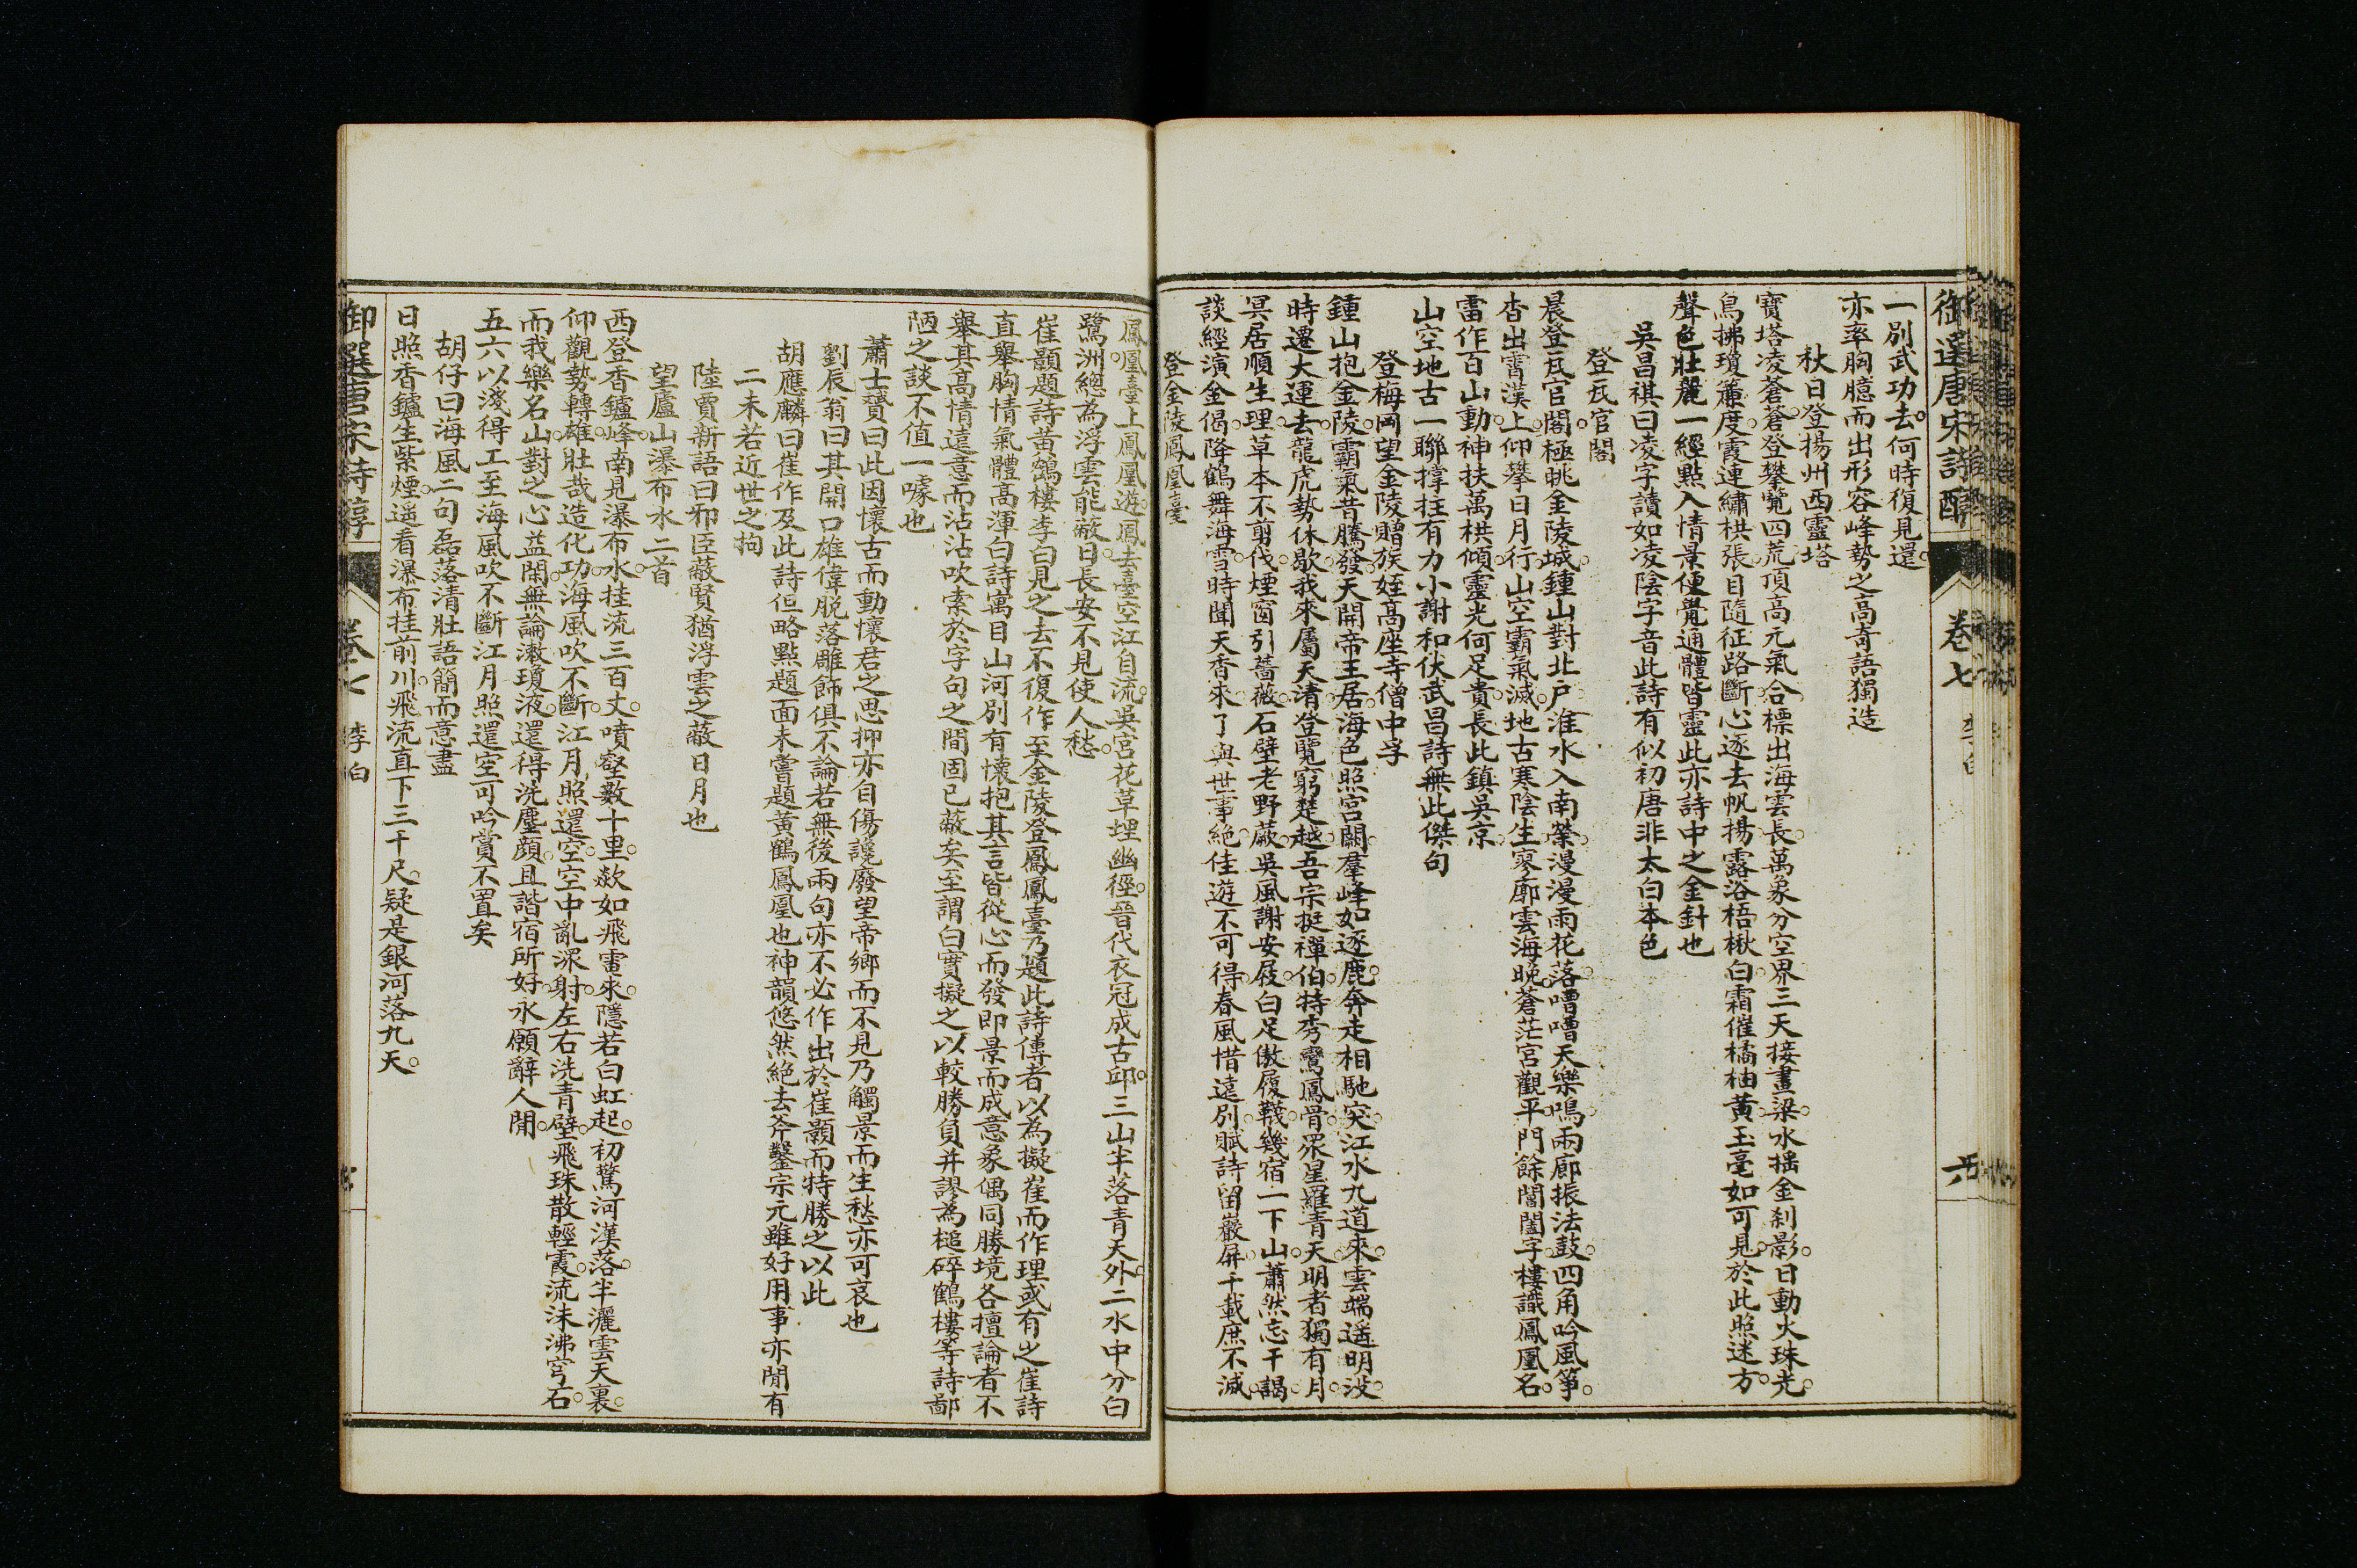 御選唐宋詩醇 卷七 李白
一別武功去何時復見還
亦率胸臆而出形容峰勢之高奇語獨造
秋日登揚州西靈塔
寶塔凌蒼蒼登攀覽四荒頂高元氣合標出海雲長萬象分空界三天接畫梁水搖金刹影日動火珠光
鳥拂瓊簷度霞連繡栱張目隨征路斷心逐去帆揚露浴梧楸白霜催橘柚黃玉毫如可見於此照迷方
聲色壯麗一經點入情景便覺通體皆靈此亦詩中之金針也
吳昌祺曰凌字讀如凌陰字音此詩有似初唐非太白本色
登瓦官閣
晨登瓦官閣極眺金陵城鍾山對北戶淮水入南榮漫漫雨花落嘈嘈天樂鳴兩廊振法鼓四角吟風箏
杳出霄漢上仰攀日月行山空霸氣滅地古寒陰生寥廓雲海晚蒼茫宮觀平門餘閶闔字樓識鳳凰名
雷作百山動神扶萬栱傾靈光何足貴長此鎮吳京
山空地古一聯撐拄有力小謝和伏武昌詩無此傑句
登梅岡望金陵贈族姪高座寺僧中孚
鍾山抱金陵霸氣昔騰發天開帝王居海色照宮闕羣峰如逐鹿奔走相馳突江水九道來雲端遥明沒
時遷大運去龍虎勢休歇我來屬天清登覽窮楚越吾宗挺禪伯特秀鸞鳳骨眾星羅青天明者獨有月
冥居順生理草本不剪伐煙窗引薔薇石壁老野蕨吳風謝安屐白足傲履韈幾宿一下山蕭然忘干謁
談經演金偈降鶴舞海雪時聞天香來了與世事絶佳遊不可得春風惜遠別賦詩留巖屏千載庶不滅
登金陵鳳凰臺
鳳凰臺上鳳凰遊鳳去臺空江自流吳宮花草埋幽徑晉代衣冠成古邱三山半落青天外二水中分白
鷺洲總為浮雲能蔽日長安不見使人愁
崔顥題詩黃鶴樓李白見之去不復作至金陵登鳳凰臺乃題此詩傳者以為擬崔而作理或有之崔詩
直舉胸情氣體高渾白詩寓目山河別有懷抱其言皆從心而發即景而成意象偶同勝境各擅論者不
舉其高情遠意而沾沾吹索於字句之間固已蔽矣至謂白實擬之以較勝負并謬為槌碎鶴樓等詩鄙
陋之談不值一噱也
蕭士贇曰此因懷古而動懷君之思抑亦自傷讒廢望帝鄉而不見乃觸景而生愁亦可哀也
劉辰翁曰其開口雄偉脫落雕飾俱不論若無後兩句亦不必作出於崔顥而特勝之以此
胡應麟曰崔作及此詩但略點題面未嘗題黃鶴鳳凰也神韻悠然絶去斧鑿宗元雖好用事亦閒有
二未若近世之拘
陸賈新語曰邪臣蔽賢猶浮雲之蔽日月也
望廬山瀑布水二首
西登香鑪峰南見瀑布水挂流三百丈噴壑數十里歘如飛雷來隱若白虹起初驚河漢落半灑雲天裏
仰觀勢轉雄壯哉造化功海風吹不斷江月照還空空中亂潈射左右洗青壁飛珠散輕霞流沫沸穹石
而我樂名山對之心益閑無論漱瓊液還得洗塵顔且諧宿所好永願辭人閒
五六以淺得工至海風吹不斷江月照還空可吟賞不置矣
胡仔曰海風二句磊落清壯語簡而意盡
日照香鑪生紫煙遥看瀑布挂前川飛流直下三千尺疑是銀河落九天
御選唐宋詩醇 卷七 李白